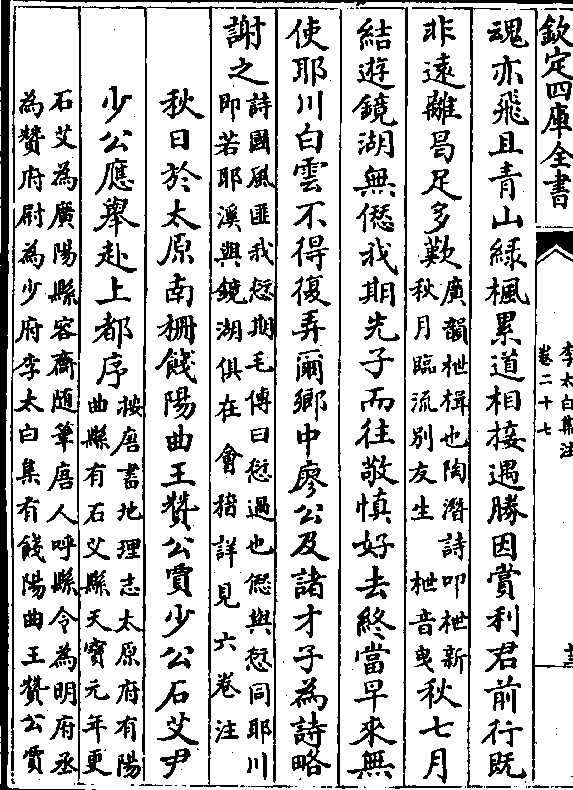 欽定四庫全書
李太白集注
卷二十七
魂亦飛且青山綠楓累道相接遇勝因賞利君前行既
非遠離曷足多歎
廣韻枻楫也陶潛詩叩枻新
秋月臨流別友生 枻音曳
秋七月
結遊鏡湖無僁我期先子而往敬慎好去終當早來無
使耶川白雲不得復弄爾鄉中廖公及諸才子為詩略
謝之
詩國風匪我愆期毛傳曰愆過也僁與愆同耶川
即若耶溪與鏡湖俱在會稽詳見六卷注
秋日於太原南柵餞陽曲王贊公賈少公石艾尹
少公應舉赴上都序
按唐書地理志太原府有陽
曲縣有石艾縣天寶元年更
石艾為廣陽縣容齋隨筆唐人呼縣令為明府丞
為贊府尉為少府李太白集有餞陽曲王贊公賈